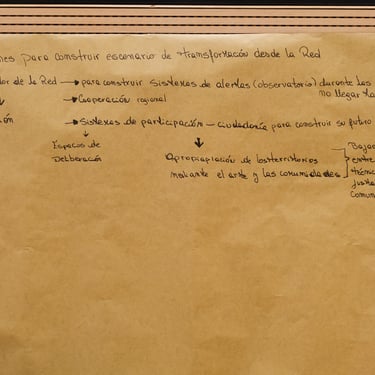 nes para construir escenario de transformación desde la Red
dor de la Red → para construir sistemas de alertas (observatorio) durante los
no llegar ta
→ Cooperación regional
ón
→ Sistemas de participación — ciudadanía para construir su futuro
Espacios de
Deliberación
Apropiapiación de los territorios
mediante el arte y las comunidades
Bajar
entre
técnic
justa
Comun